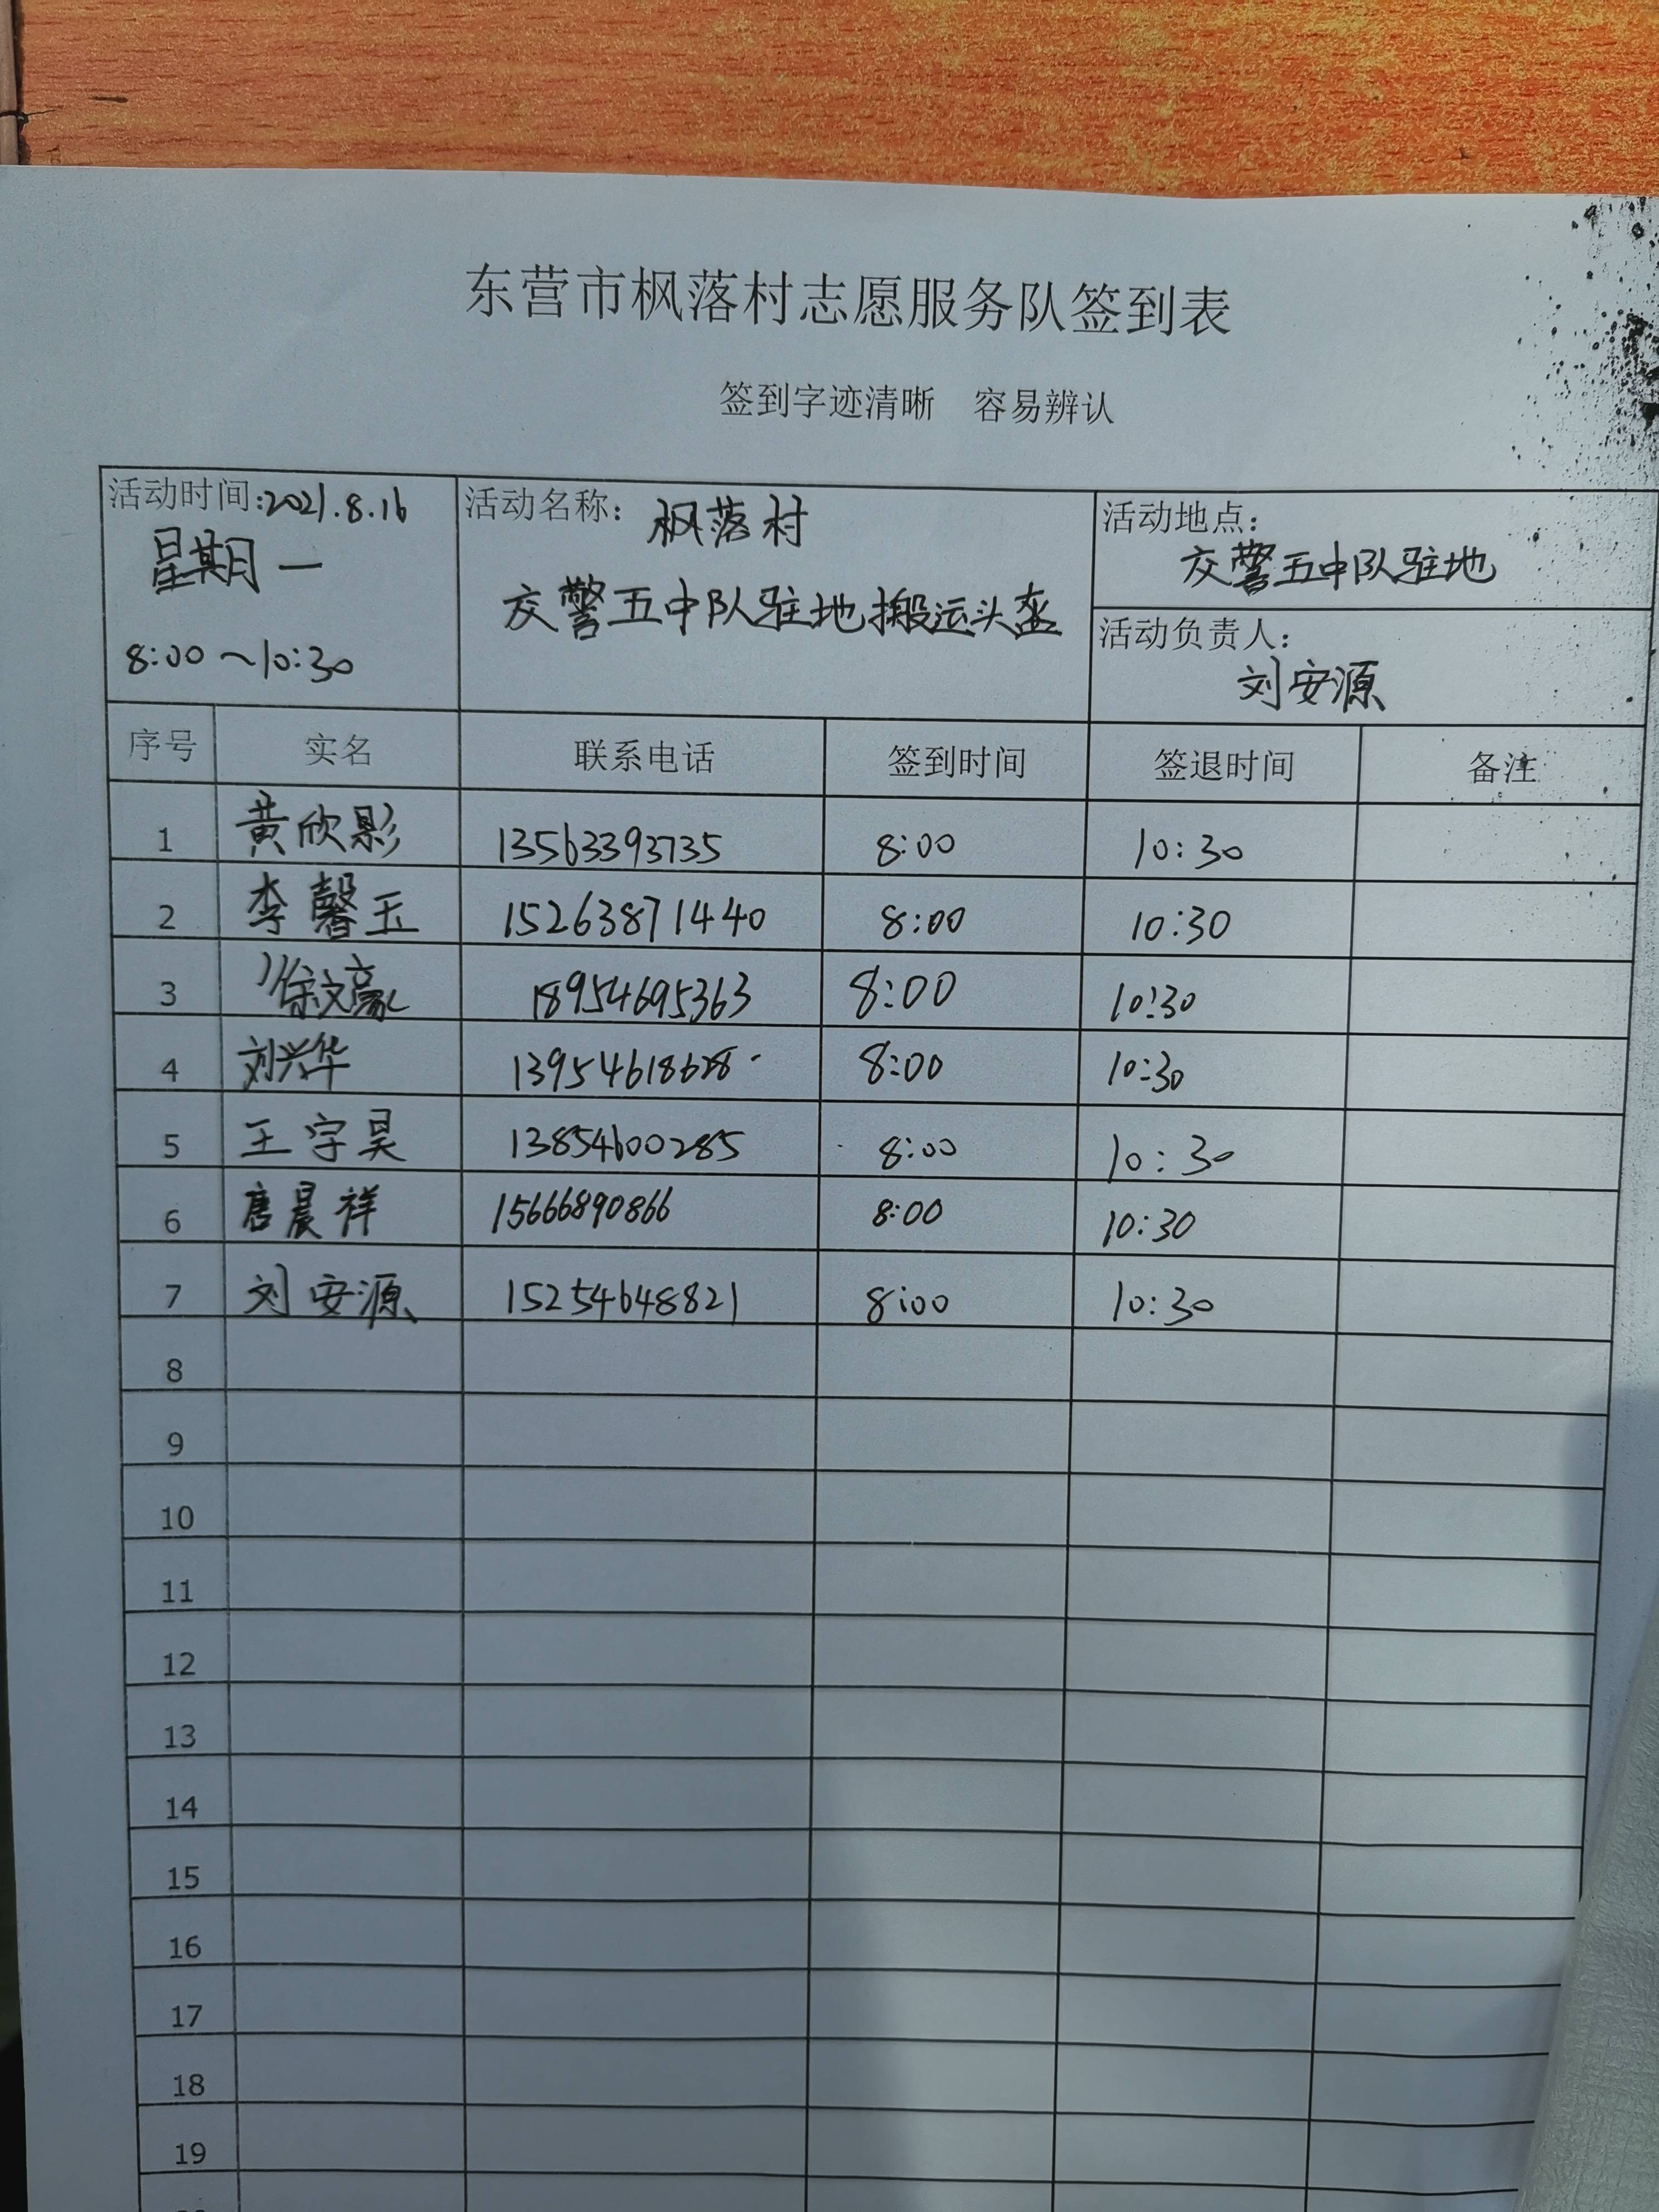 东营市枫落村志愿服务队签到表
签到字迹清晰 容易辨认
活动时间:2021.8.16
星期一
8:00~10:30
活动名称: 枫落村
交警五中队驻地搬运头盔
活动地点:
交警五中队驻地
活动负责人:
刘安源
序号 实名 联系电话 签到时间 签退时间 备注
1 黄欣影 13563393735 8:00 10:30
2 李馨玉 15263871440 8:00 10:30
3 徐文豪 18954695363 8:00 10:30
4 刘兴华 8:00 10:30
5 王宇昊 13854600285 8:00 10:30
6 唐晨祥 15666890866 8:00 10:30
7 刘安源 15254648821 8:00 10:30
8
9
10
11
12
13
14
15
16
17
18
19